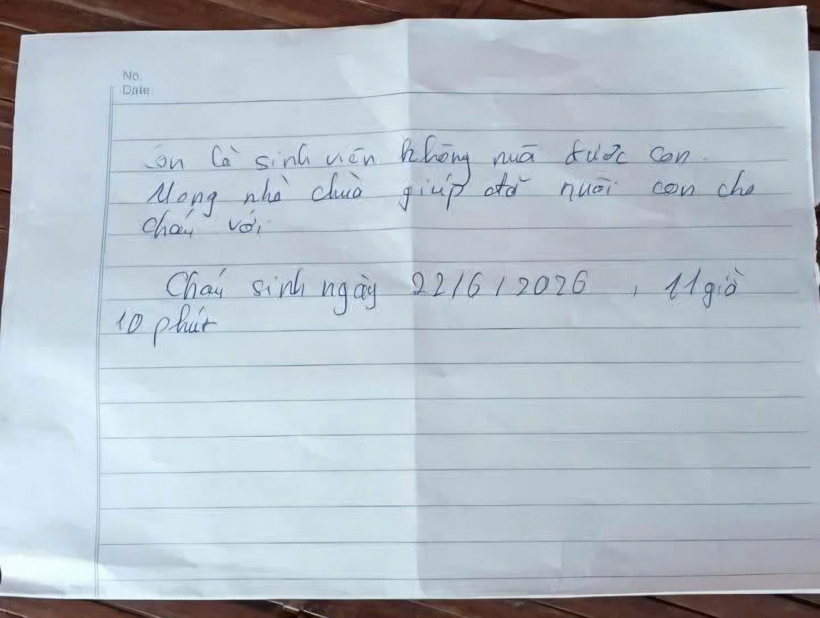 No.
Date
Con là sinh viên không nuô được con.
Mong nhà chùa giúp đỡ nuôi con cho
cháu với.
Cháu sinh ngày 22/6/2026, 11 giờ
10 phút